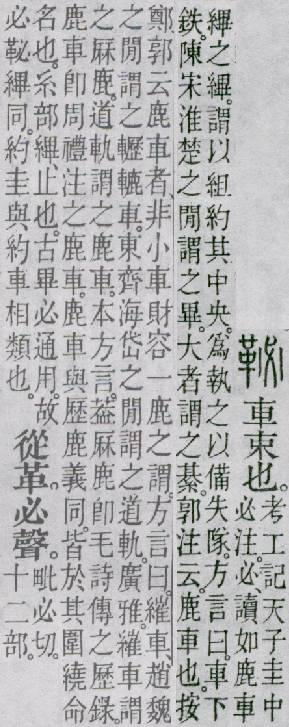 䩛 車束也。考工記天子圭中
必注。必、讀如鹿車
縪之縪。謂以組約其中央。爲執之以備失隊。方言曰。車下
鉄、陳宋淮楚之閒謂之畢。大者謂之綦。郭注云。鹿車也。按
鄭郭云鹿車者、非小車財容一鹿之謂。方言曰。繀車、趙魏
之閒謂之轣轆車。東齊海岱之閒謂之道軌。廣雅。繀車謂
之厤鹿。道軌謂之鹿車。本方言。葢厤鹿卽毛詩傳之歷錄
鹿車卽周禮注之鹿車。鹿車與歷鹿義同。皆於其圍繞命
名也。糸部縪、止也。古畢必通用。故
必䩛縪同。約圭與約車相類也。
從革必聲。毗必切。
十二部。